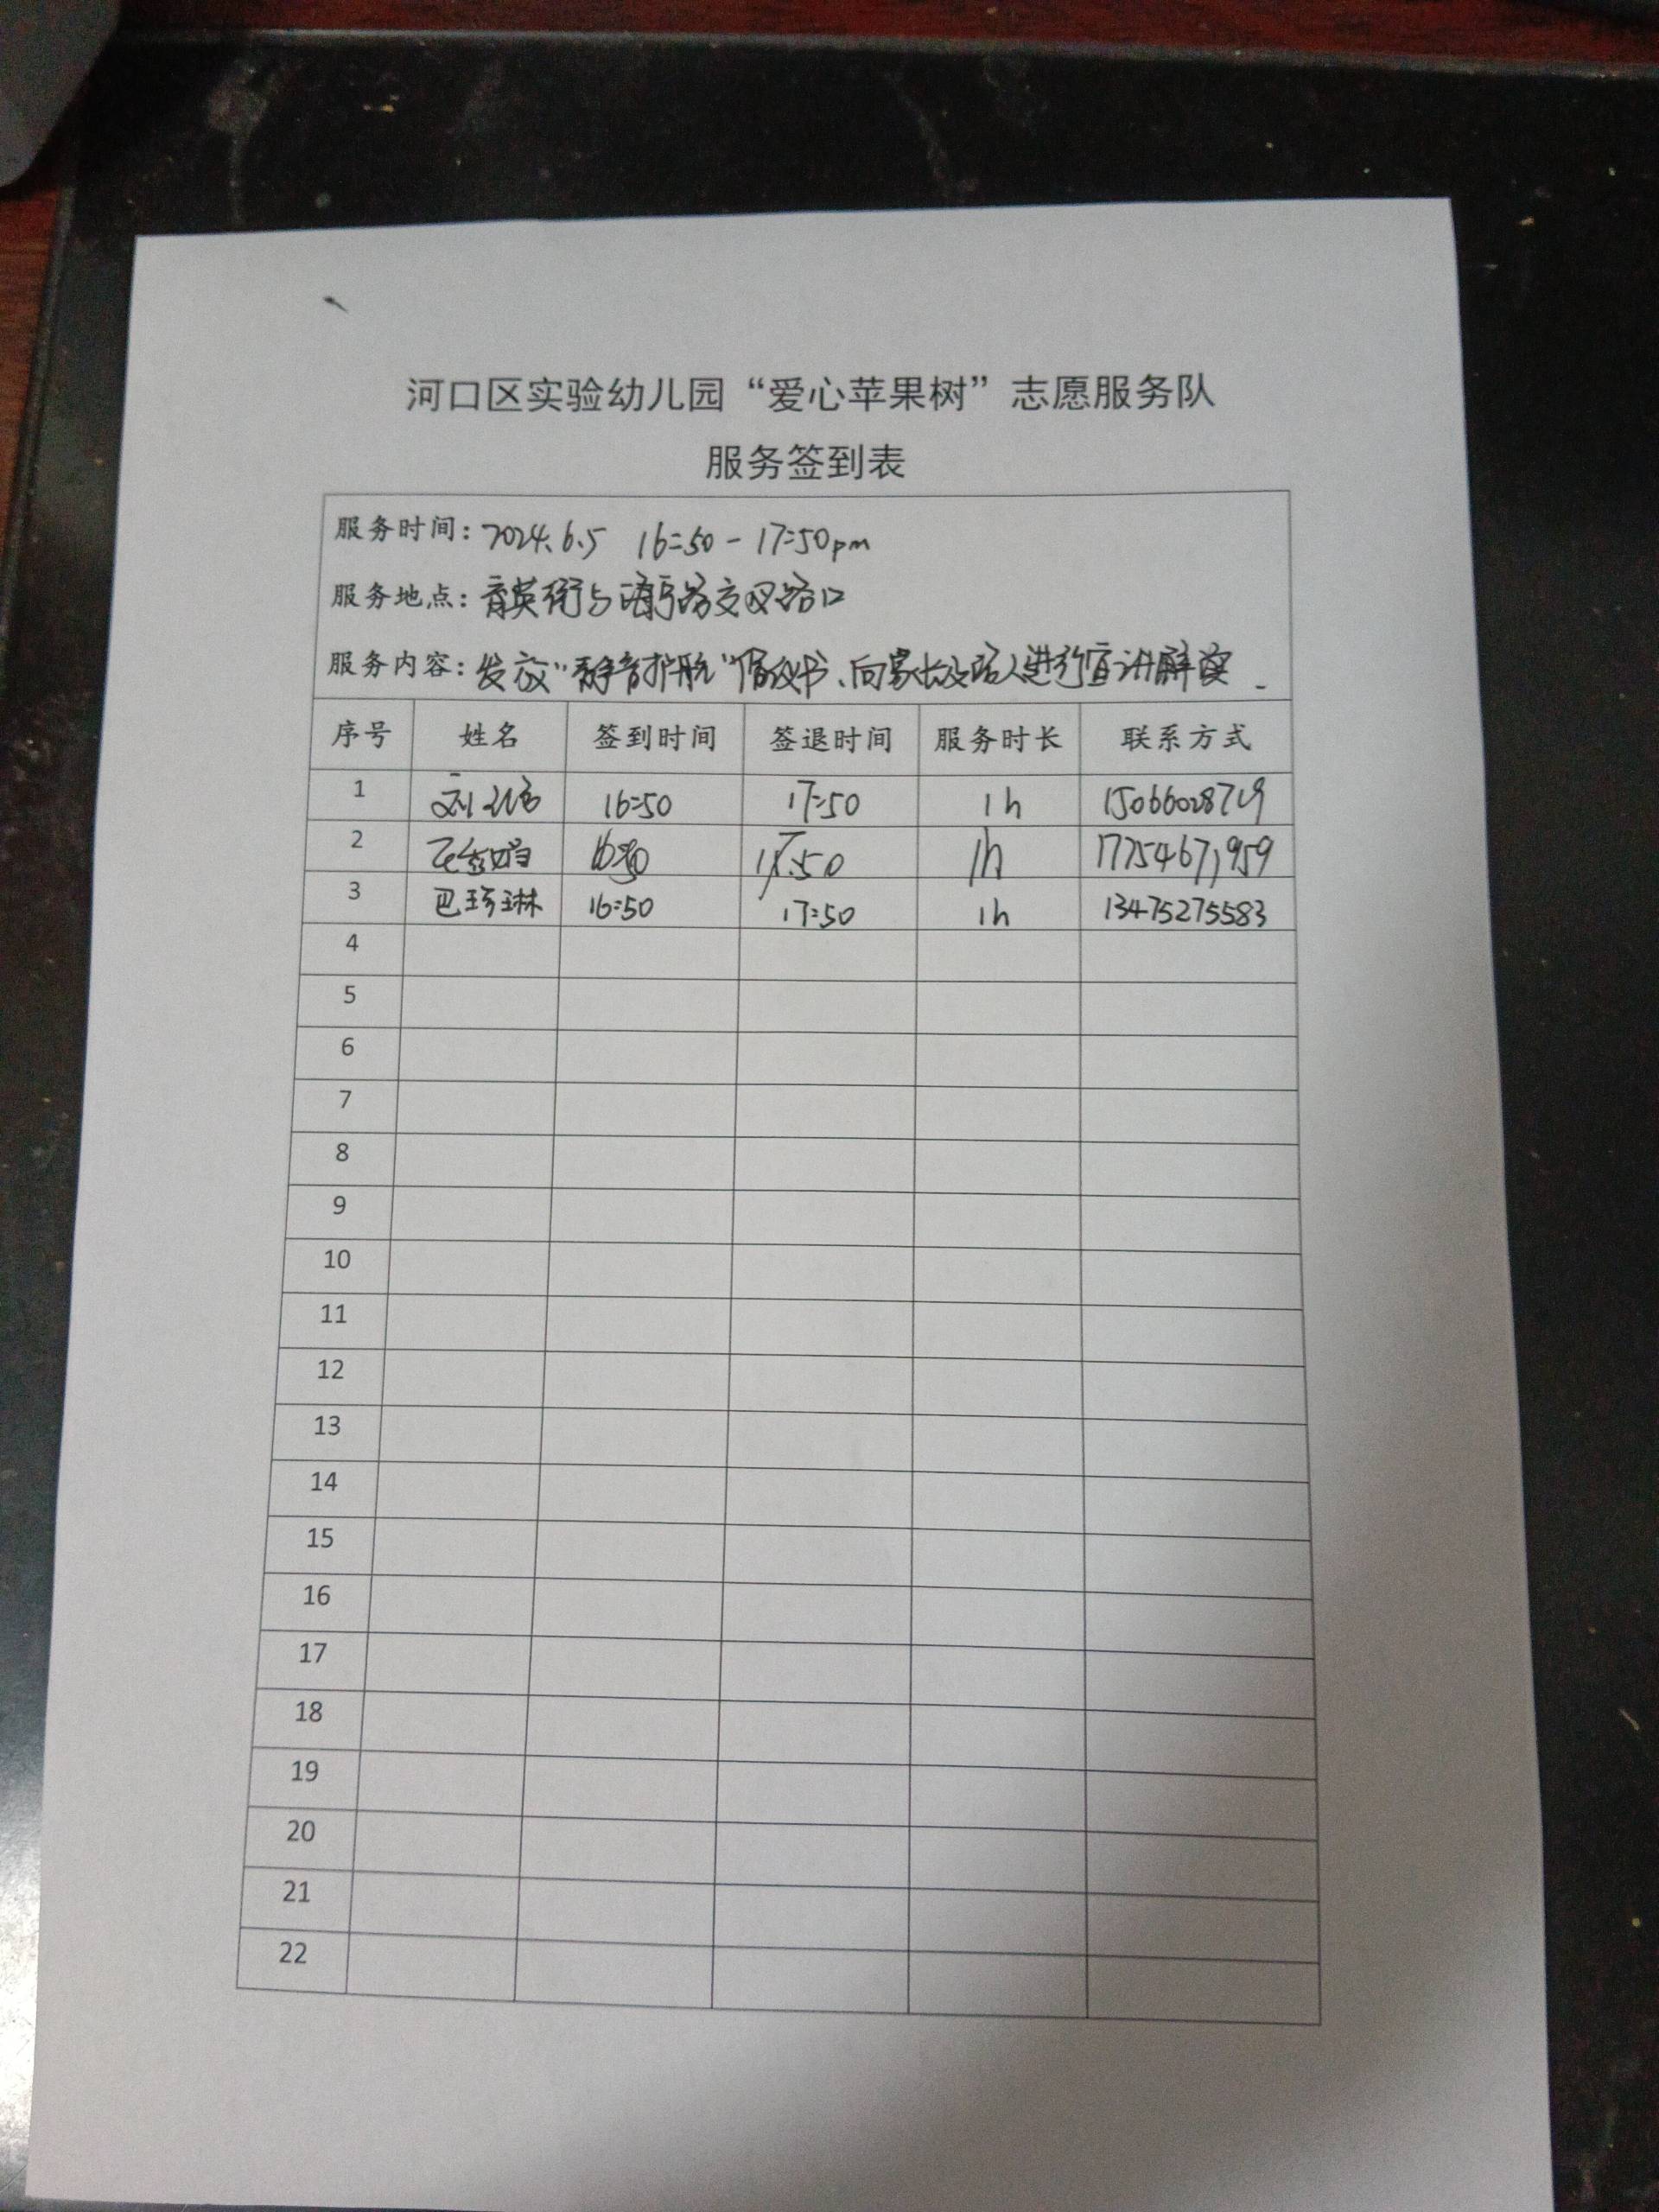 河口区实验幼儿园“爱心苹果树”志愿服务队
服务签到表
服务时间：2024.6.5 16:50-17:50pm
服务地点：育英街与 路交叉路口
服务内容：发放“静音护航”倡议书、向家长及路人进行宣讲解读.
序号 姓名 签到时间 签退时间 服务时长 联系方式
1 刘 16:50 17:50 1h 15066028719
2 17:50 1h 17754671959
3 巴珍琳 16:50 17:50 1h 13475275583
4
5
6
7
8
9
10
11
12
13
14
15
16
17
18
19
20
21
22